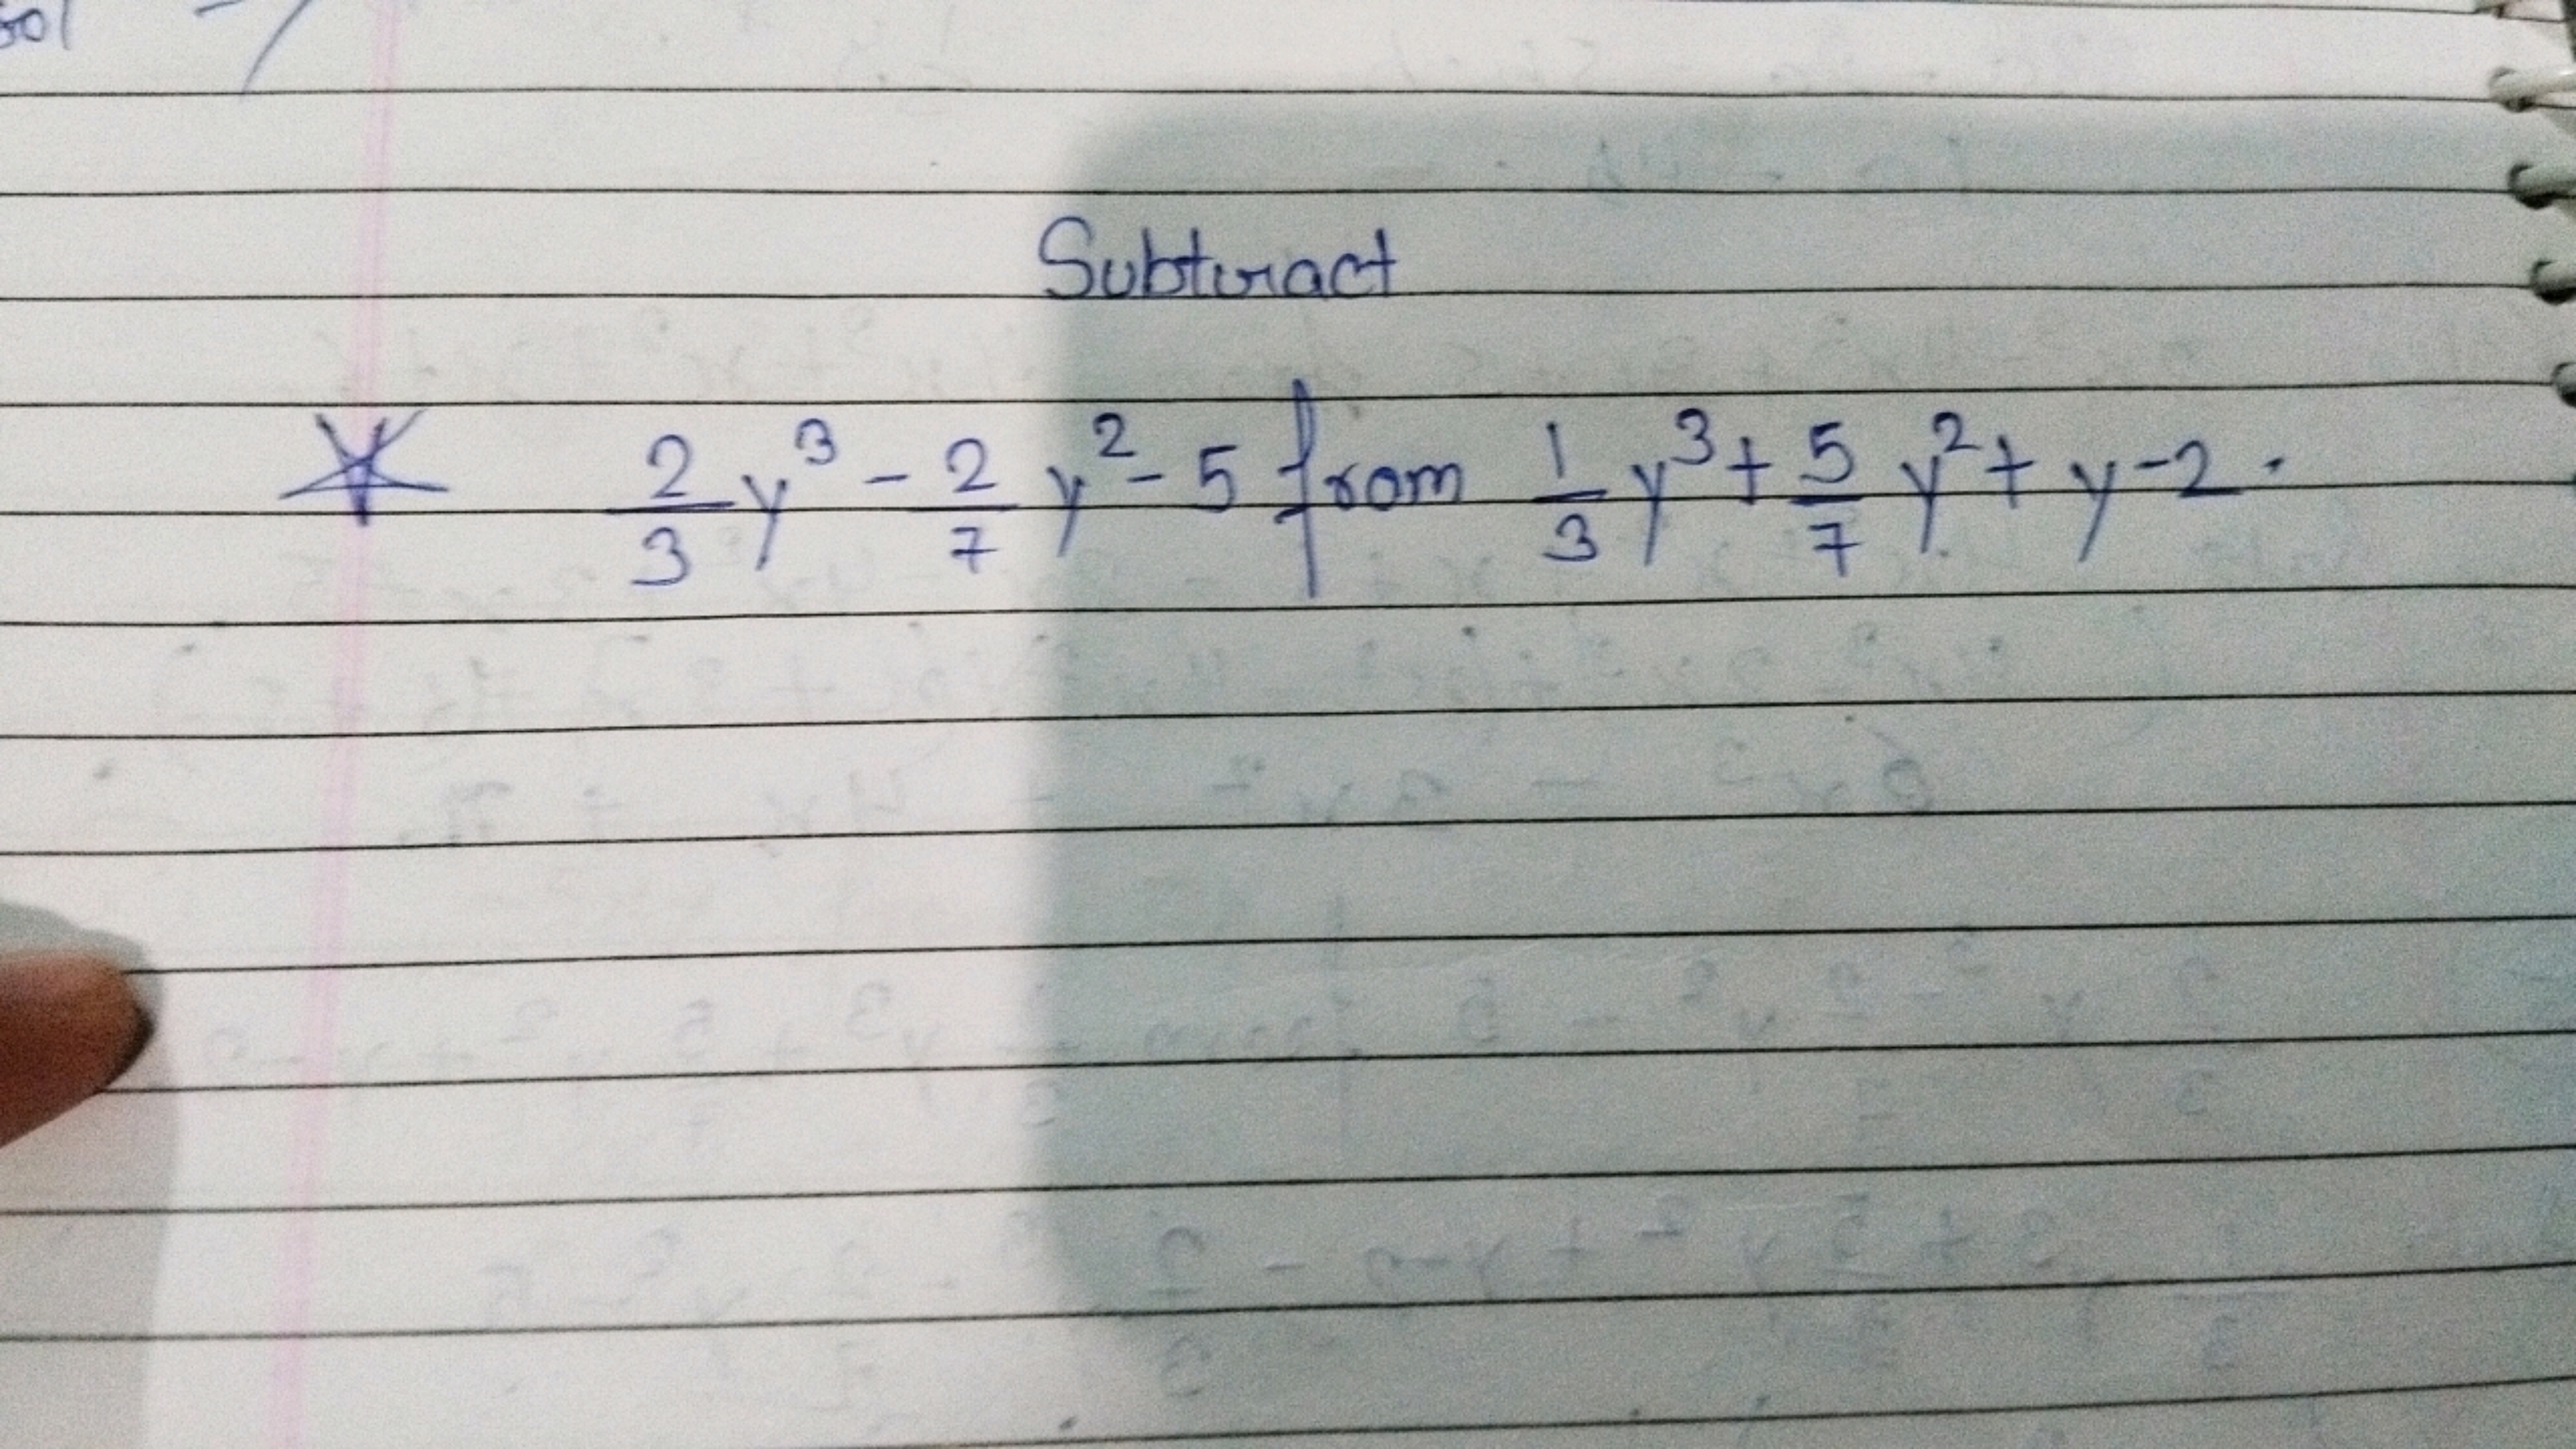 Subtract
2/3 y³ - 2/7 y² - 5 from 1/3 y³ + 5/7 y² + y - 2.